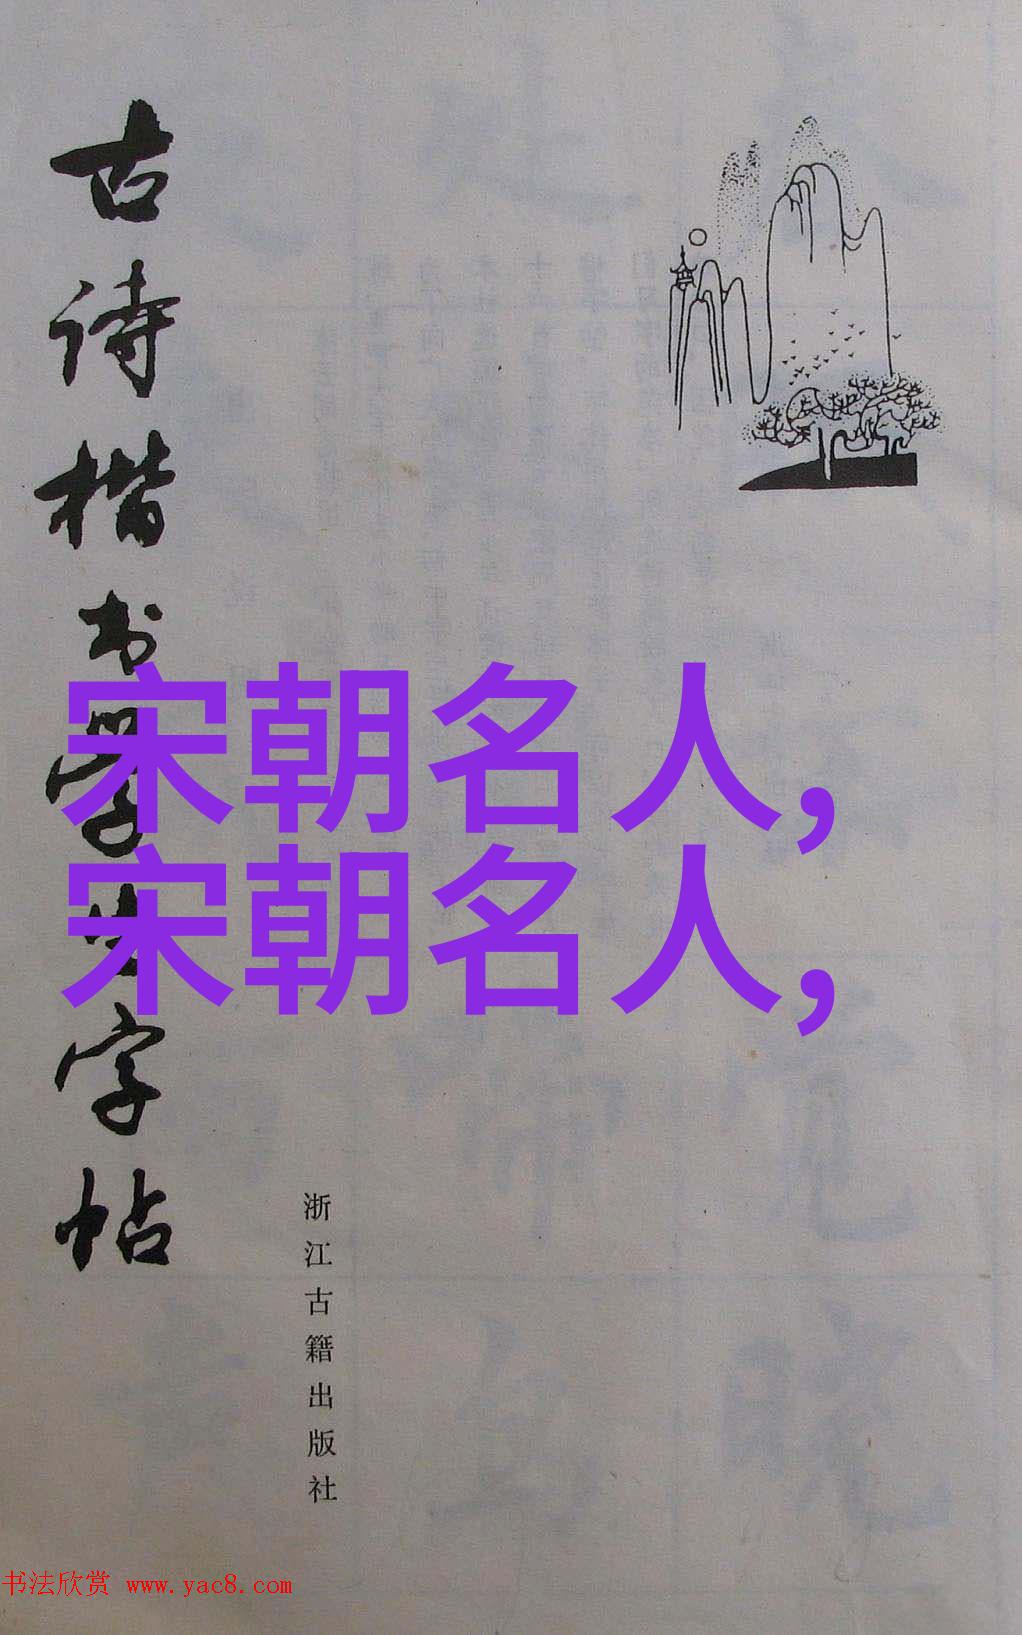 古诗楷书学生字帖
宋朝名人,
宋朝名人,
浙江古籍出版社
书法欣赏 www.yac8.com